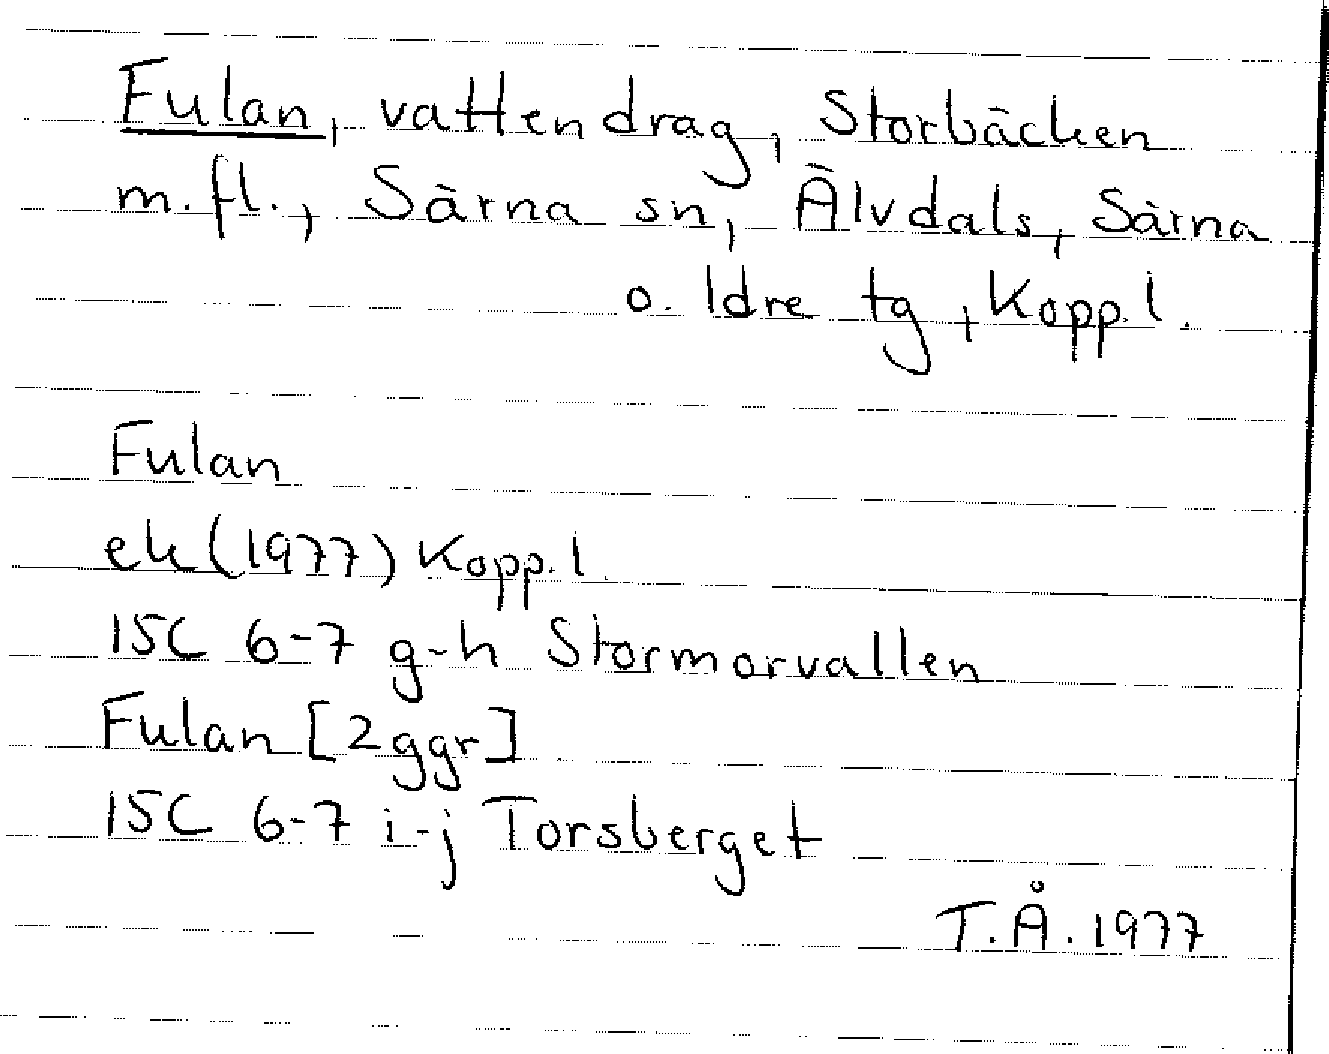 Fulan, vattendrag, Storbäcken
m.fl., Särna sn, Älvdals, Särna
o. Idre tg, Kopp. l.
Fulan
ek (1977) Kopp. l.
15C 6-7 g-h Stormorvallen
Fulan [2 ggr]
15C 6-7 i-j Torsberget
T.Å. 1977